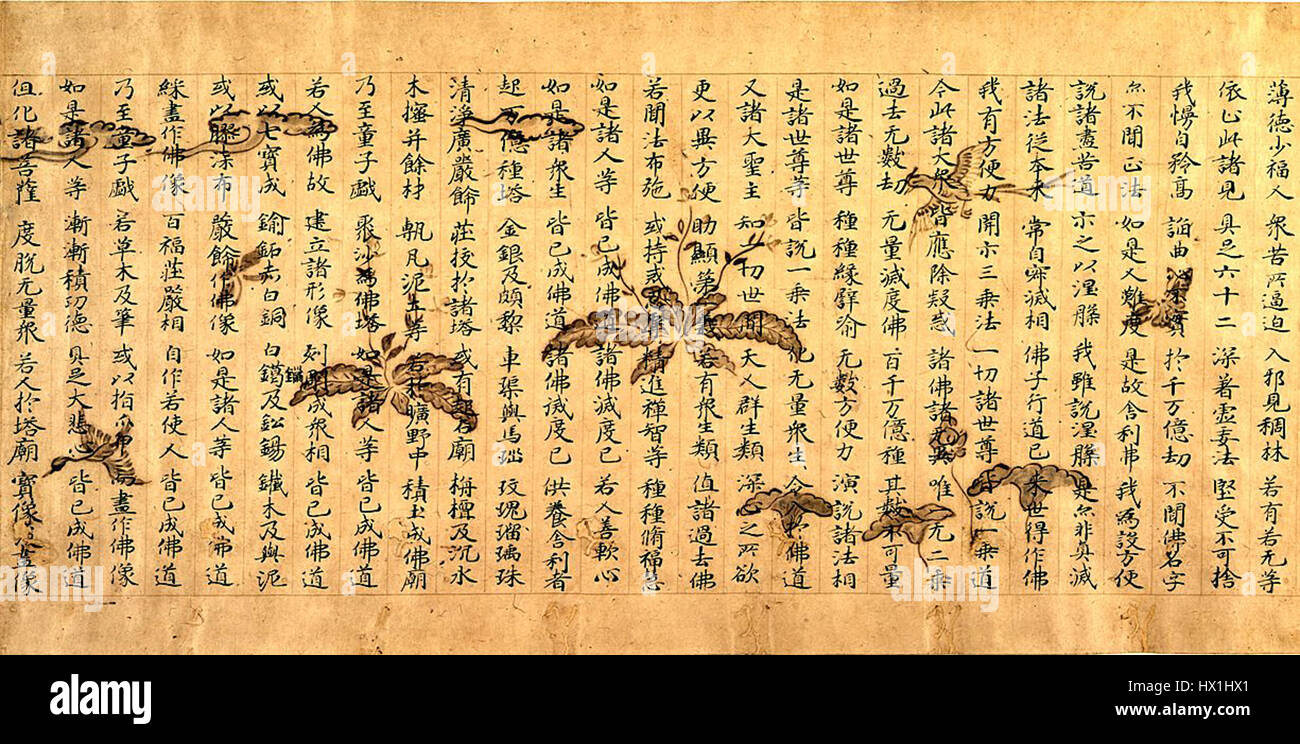 薄德少福人 衆苦所逼迫 入邪見稠林 若有若无等
依止此諸見 具足六十二 深著虛妄法 堅受不可捨
我慢自矜高 諂曲心不實 於千万億劫 不聞佛名字
亦不聞正法 如是人難度 是故舍利弗 我爲設方便
說諸盡苦道 示之以涅槃 我雖說涅槃 是亦非真滅
諸法從本来 常自寂滅相 佛子行道已 来世得作佛
我有方便力 開示三乘法 一切諸世尊 皆說一乘道
今此諸大衆 皆應除疑惑 諸佛語无異 唯一无二乘
過去无數劫 无量滅度佛 百千万億種 其數不可量
如是諸世尊 種種緣譬喻 无數方便力 演說諸法相
是諸世尊等 皆說一乘法 化无量衆生 令入於佛道
又諸大聖主 知一切世間 天人群生類 深心之所欲
更以異方便 助顯第一義 若有衆生類 值諸過去佛
若聞法布施 或持戒忍辱 精進禪智等 種種脩福慧
如是諸人等 皆已成佛道 諸佛滅度已 若人善軟心
如是諸衆生 皆已成佛道 諸佛滅度已 供養舍利者
起万億種塔 金銀及頗黎 車渠與馬瑙 玫瑰瑠璃珠
清淨廣嚴飾 莊挍於諸塔 或有起石廟 栴檀及沉水
木櫁并餘材 甎瓦泥土等 若於曠野中 積土成佛廟
乃至童子戲 聚沙爲佛塔 如是諸人等 皆已成佛道
若人爲佛故 建立諸形像 刻雕成衆相 皆已成佛道
或以七寶成 鍮鉐赤白銅 白鑞及鈆錫 鐵木及與泥
或以膠漆布 嚴飾作佛像 如是諸人等 皆已成佛道
綵畫作佛像 百福莊嚴相 自作若使人 皆已成佛道
乃至童子戲 若草木及筆 或以指爪甲 而畫作佛像
如是諸人等 漸漸積功德 具足大悲心 皆已成佛道
但化諸菩薩 度脫无量衆 若人於塔廟 寶像及畫像
alamy
alamy
Image ID: HX1HX1
www.alamy.com